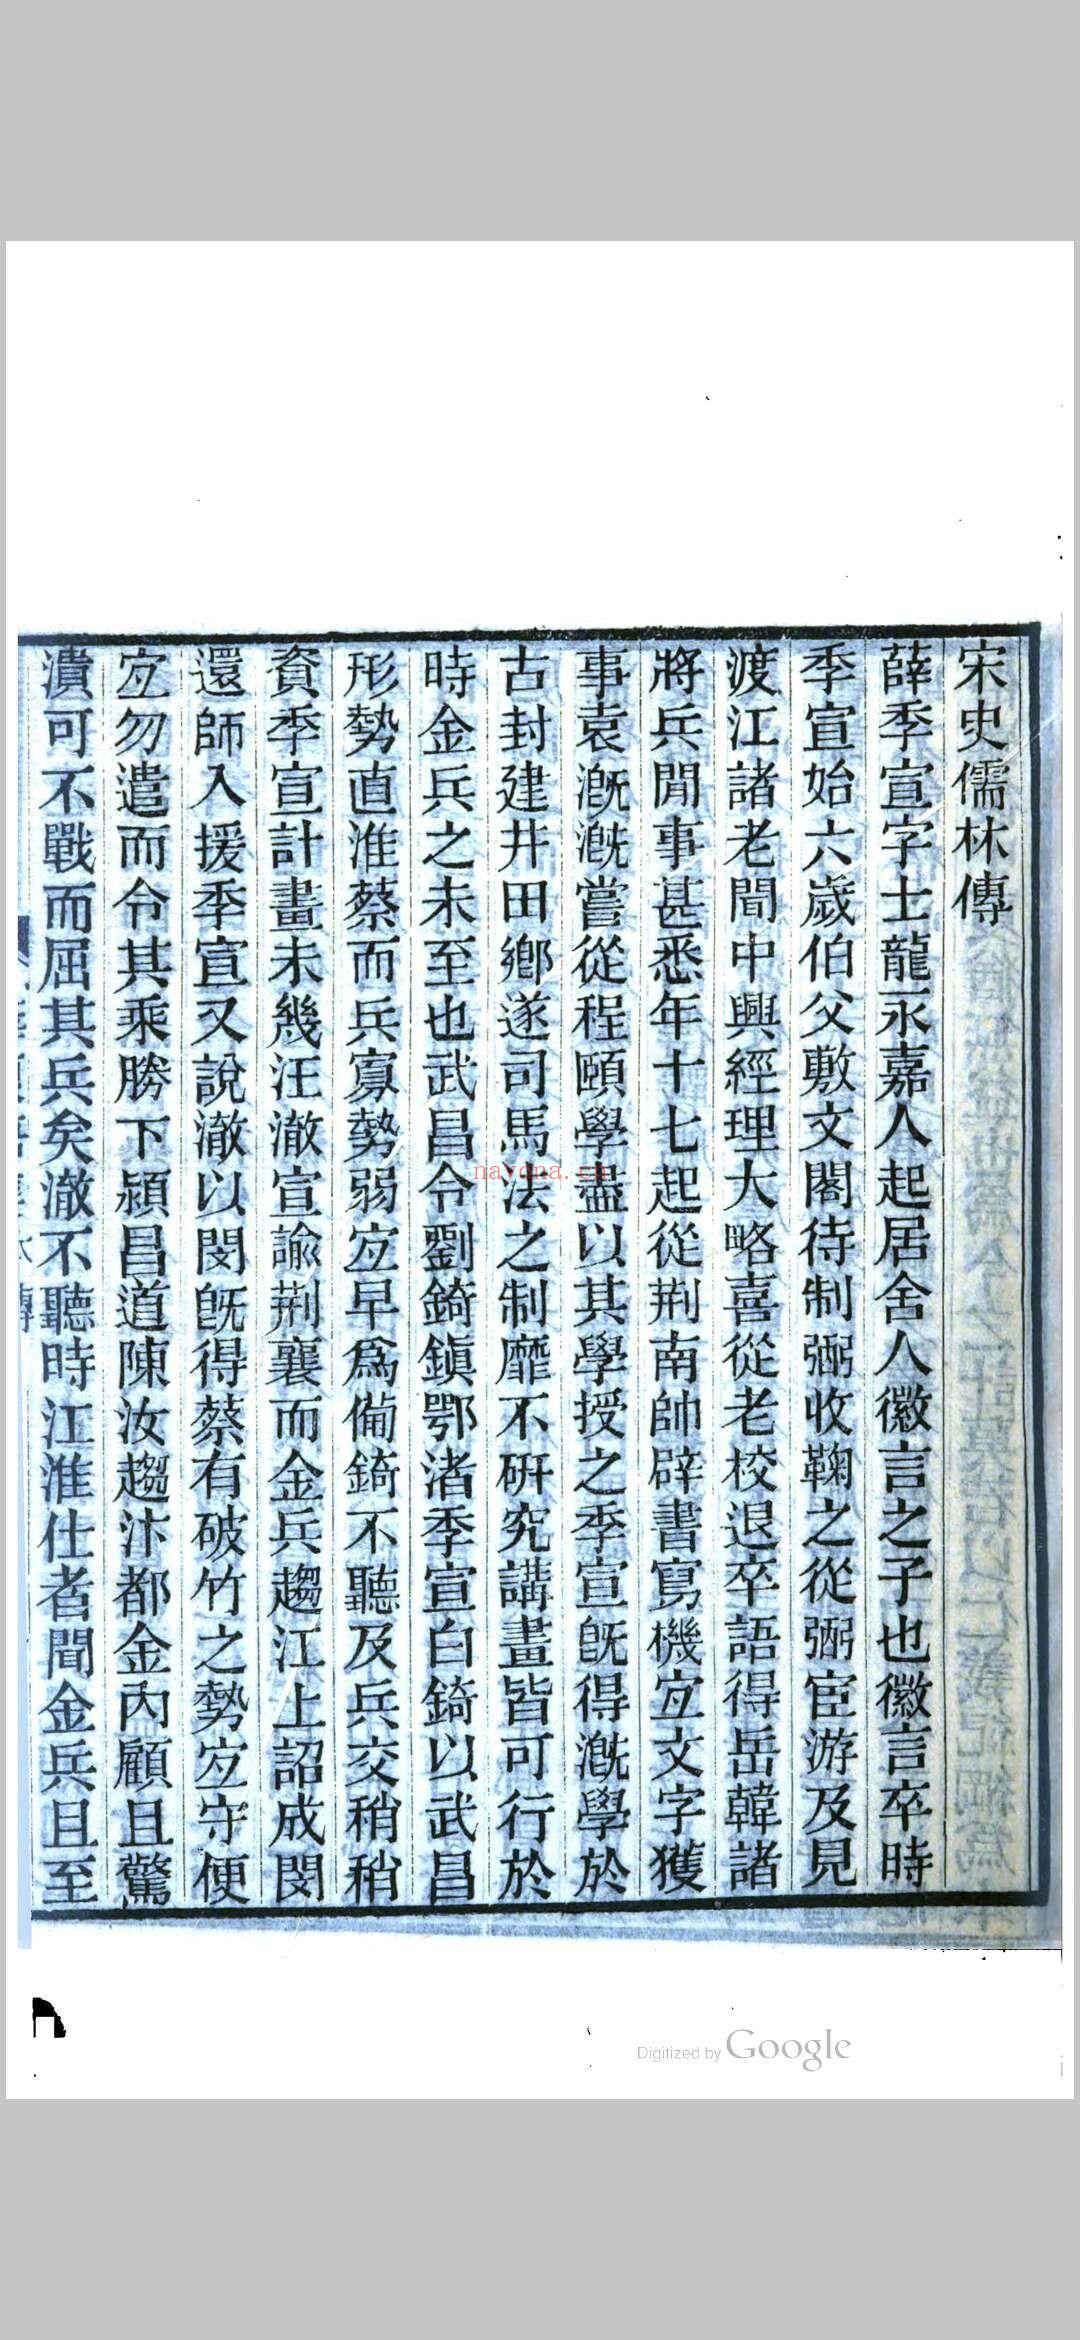 宋史儒林傳
薛季宣字士龍永嘉人起居舍人徽言之子也徽言卒時
季宣始六歲伯父敷文閣待制弼收鞠之從弼宦游及見
渡江諸老閒中興經理大略喜從老校退卒語得岳韓諸
將兵閒事甚悉年十七起從荆南帥辟書寫機宜文字獲
事袁漑漑嘗從程頤學盡以其學授之季宣旣得漑學於
古封建井田鄉遂司馬法之制靡不研究講畫皆可行於
時金兵之未至也武昌令劉錡鎭鄂渚季宣白錡以武昌
形勢直淮蔡而兵寡勢弱宜早爲備錡不聽及兵交稍稍
資季宣計畫未幾汪澈宣諭荆襄而金兵趨江上詔成閔
還師入援季宣又說澈以閔旣得蔡有破竹之勢宜守便
宜勿遣而令其乘勝下潁昌道陳汝趨汴都金內顧且驚
潰可不戰而屈其兵矣澈不聽時江淮仕者聞金兵且至
nayona.cn
Digitized by Google